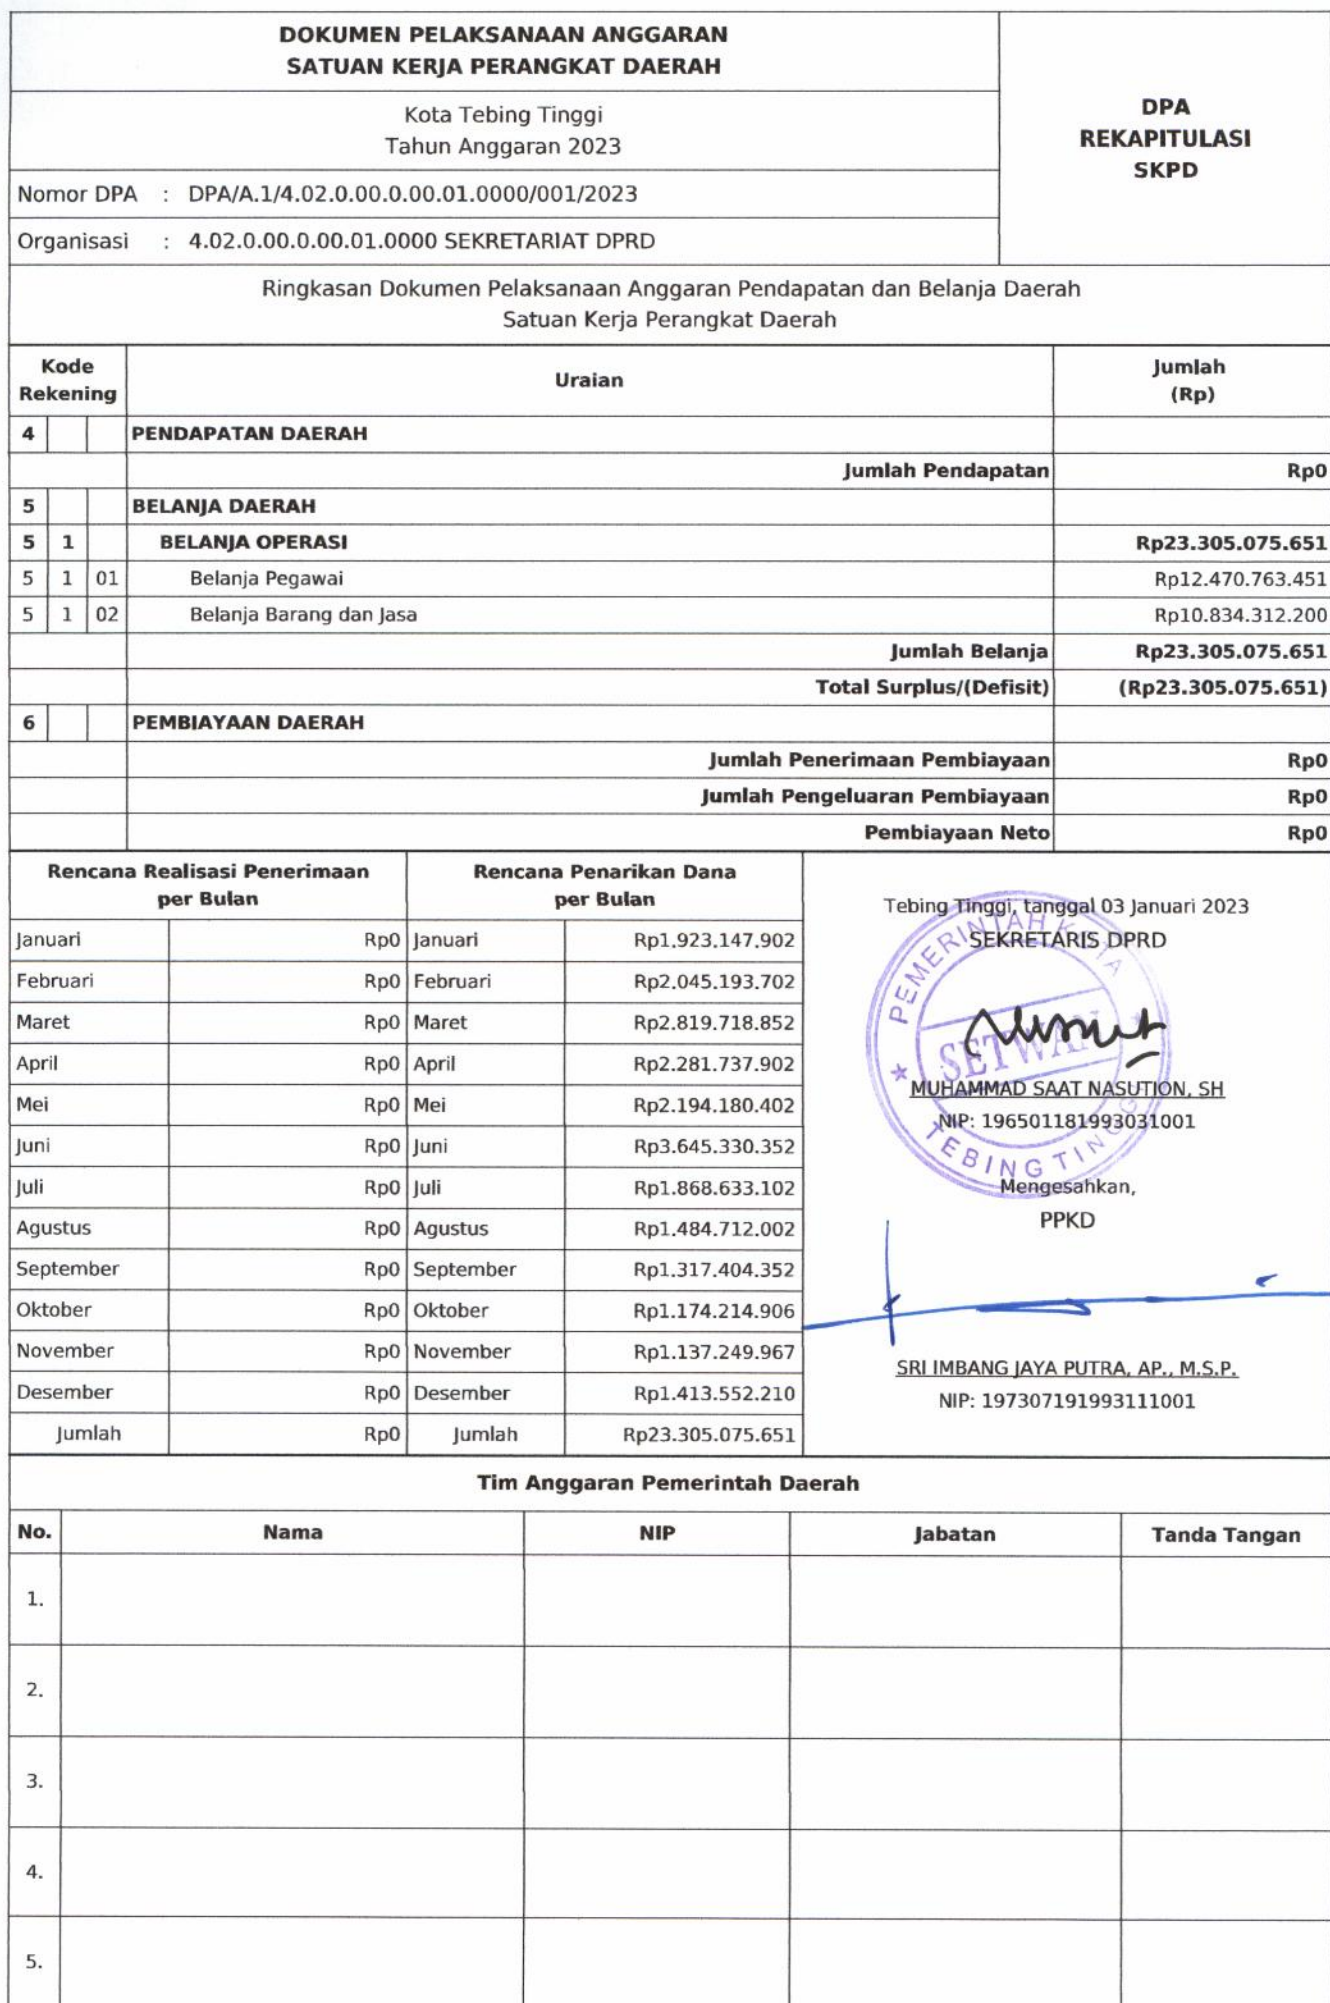 DOKUMEN PELAKSANAAN ANGGARAN
SATUAN KERJA PERANGKAT DAERAH
DPA
REKAPITULASI
SKPD
Kota Tebing Tinggi
Tahun Anggaran 2023
Nomor DPA : DPA/A.1/4.02.0.00.0.00.01.0000/001/2023
Organisasi : 4.02.0.00.0.00.01.0000 SEKRETARIAT DPRD
Ringkasan Dokumen Pelaksanaan Anggaran Pendapatan dan Belanja Daerah
Satuan Kerja Perangkat Daerah
Kode Rekening Uraian Jumlah (Rp)
4 PENDAPATAN DAERAH
Jumlah Pendapatan Rp0
5 BELANJA DAERAH
5 1 BELANJA OPERASI Rp23.305.075.651
5 1 01 Belanja Pegawai Rp12.470.763.451
5 1 02 Belanja Barang dan Jasa Rp10.834.312.200
Jumlah Belanja Rp23.305.075.651
Total Surplus/(Defisit) (Rp23.305.075.651)
6 PEMBIAYAAN DAERAH
Jumlah Penerimaan Pembiayaan Rp0
Jumlah Pengeluaran Pembiayaan Rp0
Pembiayaan Neto Rp0
Rencana Realisasi Penerimaan per Bulan Rencana Penarikan Dana per Bulan
Januari Rp0 Januari Rp1.923.147.902
Februari Rp0 Februari Rp2.045.193.702
Maret Rp0 Maret Rp2.819.718.852
April Rp0 April Rp2.281.737.902
Mei Rp0 Mei Rp2.194.180.402
Juni Rp0 Juni Rp3.645.330.352
Juli Rp0 Juli Rp1.868.633.102
Agustus Rp0 Agustus Rp1.484.712.002
September Rp0 September Rp1.317.404.352
Oktober Rp0 Oktober Rp1.174.214.906
November Rp0 November Rp1.137.249.967
Desember Rp0 Desember Rp1.413.552.210
Jumlah Rp0 Jumlah Rp23.305.075.651
Tebing Tinggi, tanggal 03 Januari 2023
SEKRETARIS DPRD
PEMERINTAH KOTA
SETWAN
TEBING TINGGI
MUHAMMAD SAAT NASUTION, SH
NIP: 196501181993031001
Mengesahkan,
PPKD
SRI IMBANG JAYA PUTRA, AP., M.S.P.
NIP: 197307191993111001
Tim Anggaran Pemerintah Daerah
No. Nama NIP Jabatan Tanda Tangan
1.
2.
3.
4.
5.